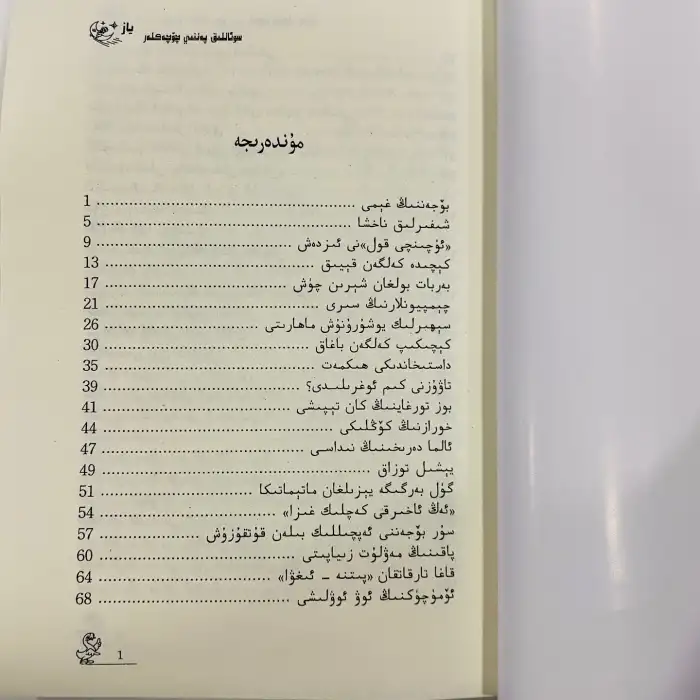 سوئاللىق پەننىي چۆچەكلەر ياز
مۇندەرىجە
بۆجەننىڭ غېمى ........ 1
شىفىرلىق ناخشا ........ 5
«ئۈچىنچى قول»نى ئىزدەش ........ 9
كېچىدە كەلگەن قېيىق ........ 13
بەربات بولغان شېرىن چۈش ........ 17
چېمپىيونلارنىڭ سىرى ........ 21
سېھىرلىك يوشۇرۇنۇش ماھارىتى ........ 26
كېچىكىپ كەلگەن باغاق ........ 30
داستىخاندىكى ھېكمەت ........ 35
تاۋۇزنى كىم ئوغرىلىدى؟ ........ 39
بوز تورغاينىڭ كان تېپىشى ........ 41
خورازنىڭ كۆڭلىكى ........ 44
ئالما دەرىخىنىڭ نىداسى ........ 47
يېشىل توزاق ........ 49
گۈل بەرگىگە يېزىلغان ماتېماتىكا ........ 51
«ئەڭ ئاخىرقى كەچلىك غىزا» ........ 54
سۇر بۆجەننى ئەپچىللىك بىلەن قۇتقۇزۇش ........ 57
پاقىنىڭ مەۋلۇت زىياپىتى ........ 60
قاغا تارقاتقان «پىتنە - ئىغۋا» ........ 64
ئۆمۈچۈكنىڭ ئوۋ ئوۋلىشى ........ 68
1